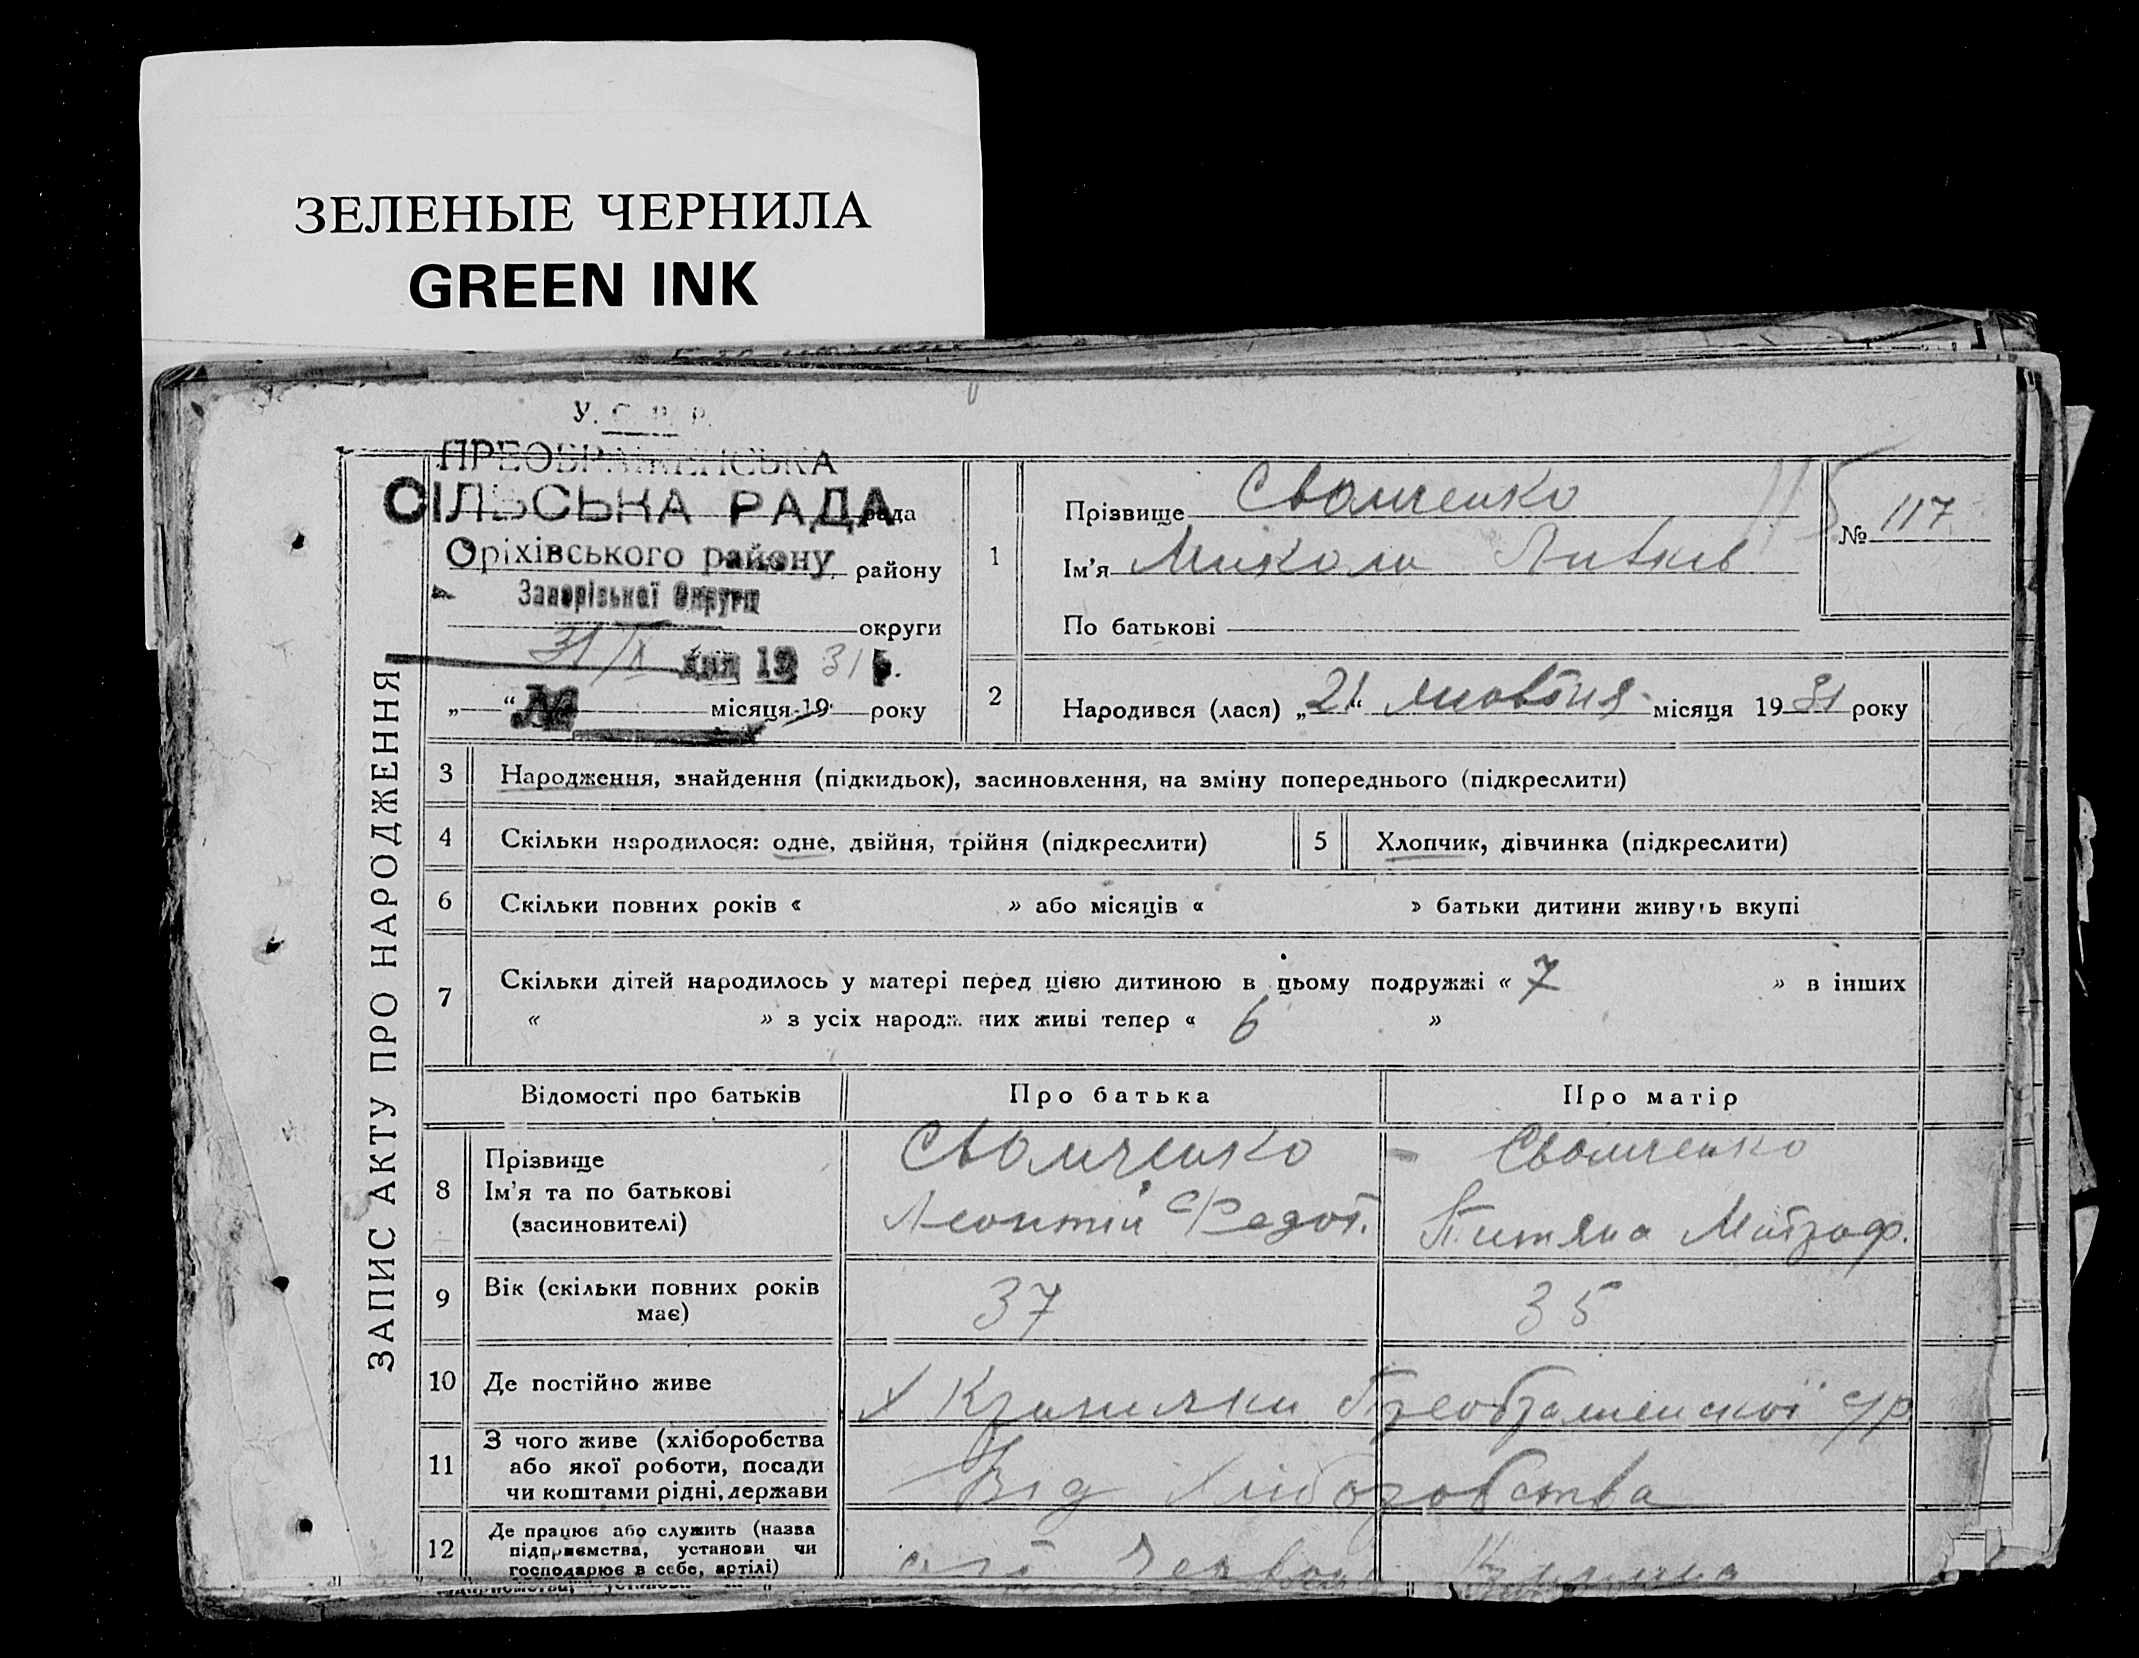 ЗЕЛЕНЫЕ ЧЕРНИЛА
GREEN INK
У. С. Р. Р.
ПРЕОБРАЖЕНСЬКА
СІЛЬСЬКА РАДА рада
Оріхівського району району
Запорізької Округи
округи
31/X дня 19 31 р.
„ “ № місяця 19 року
ЗАПИС АКТУ ПРО НАРОДЖЕННЯ
1
Прізвище
Ім'я Микола
По батькові
№ 117
2
Народився (лася) „21“ жовтня місяця 1931 року
3 Народження, знайдення (підкидьок), засиновлення, на зміну попереднього (підкреслити)
4 Скільки народилося: одне, двійня, трійня (підкреслити)
5 Хлопчик, дівчинка (підкреслити)
6 Скільки повних років « » або місяців « » батьки дитини живуть вкупі
7 Скільки дітей народилось у матері перед цією дитиною в цьому подружжі « 7 » в інших
« » з усіх народж. них живі тепер « 6 »
Відомості про батьків Про батька Про матір
8 Прізвище
Ім'я та по батькові
(засиновителі)
Леонтій Федот.
Митроф.
9 Вік (скільки повних років
має)
37 35
10 Де постійно живе
Х Кринички Преображенской с/р
11 З чого живе (хліборобства
або якої роботи, посади
чи коштами рідні, держави
Від хліборобства
12 Де працює або служить (назва
підприємства, установи чи
господарює в себе, артілі)